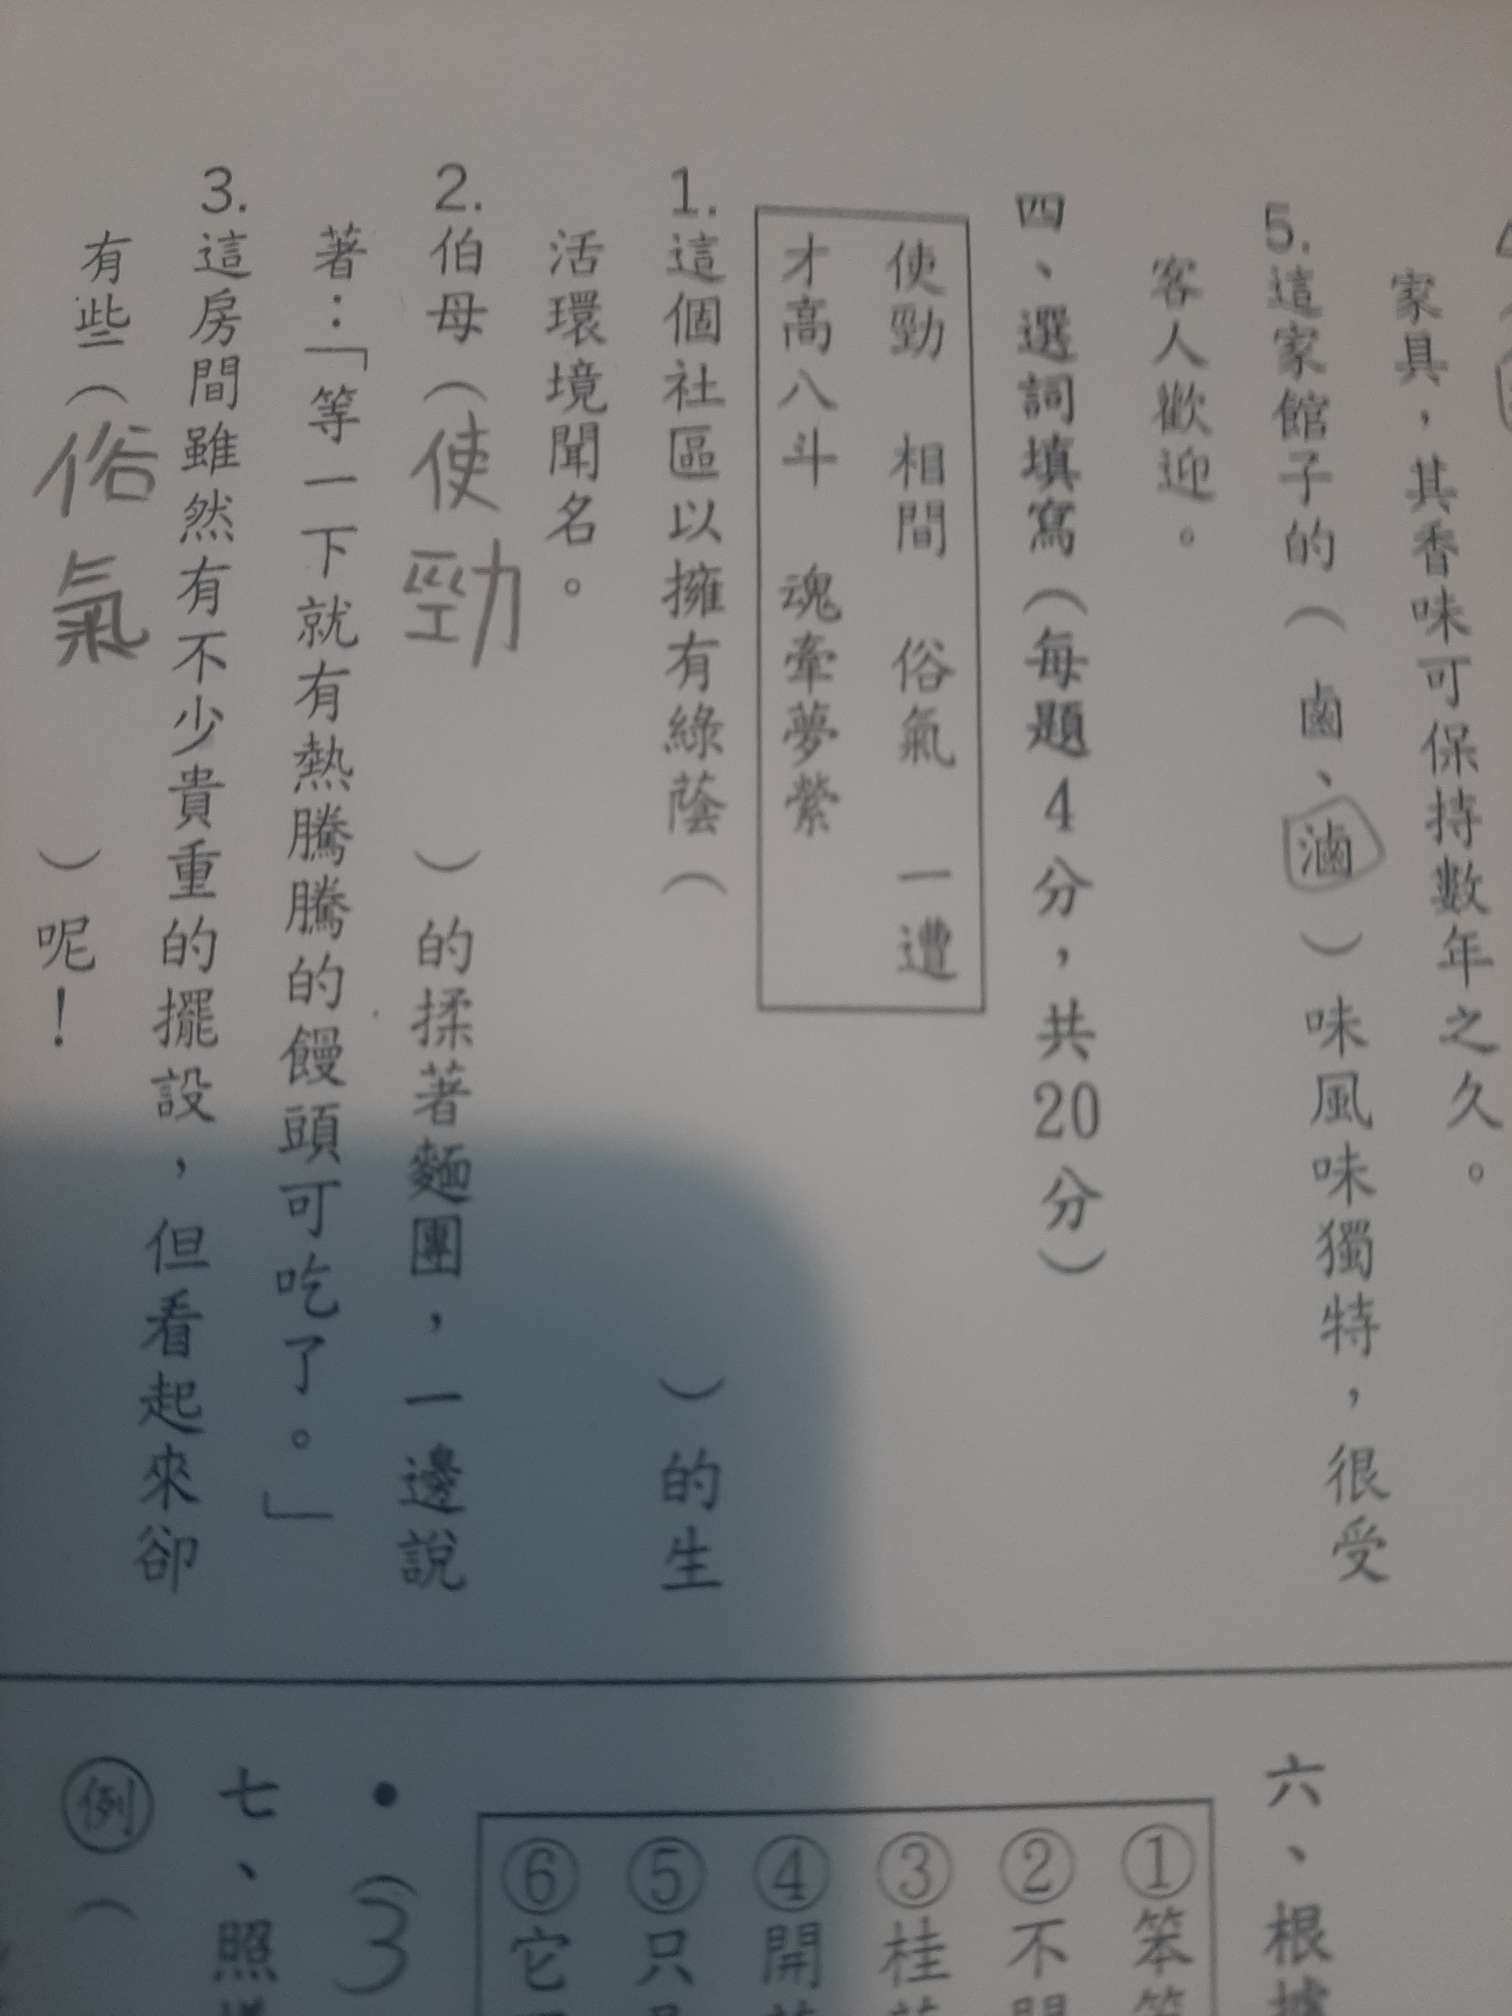 家具，其香味可保持數年之久。
5.這家館子的（鹵、滷）味風味獨特，很受
客人歡迎。
四、選詞填寫（每題4分，共20分）
使勁　相間　俗氣　一遭
才高八斗　魂牽夢縈
1.這個社區以擁有綠蔭（　）的生
活環境聞名。
2.伯母（使勁）的揉著麵團，一邊說
著：「等一下就有熱騰騰的饅頭可吃了。」
3.這房間雖然有不少貴重的擺設，但看起來卻
有些（俗氣）呢！
六、根據
①笨笨
②不
③桂
④開
⑤只
⑥它
•（3
七、照
例（